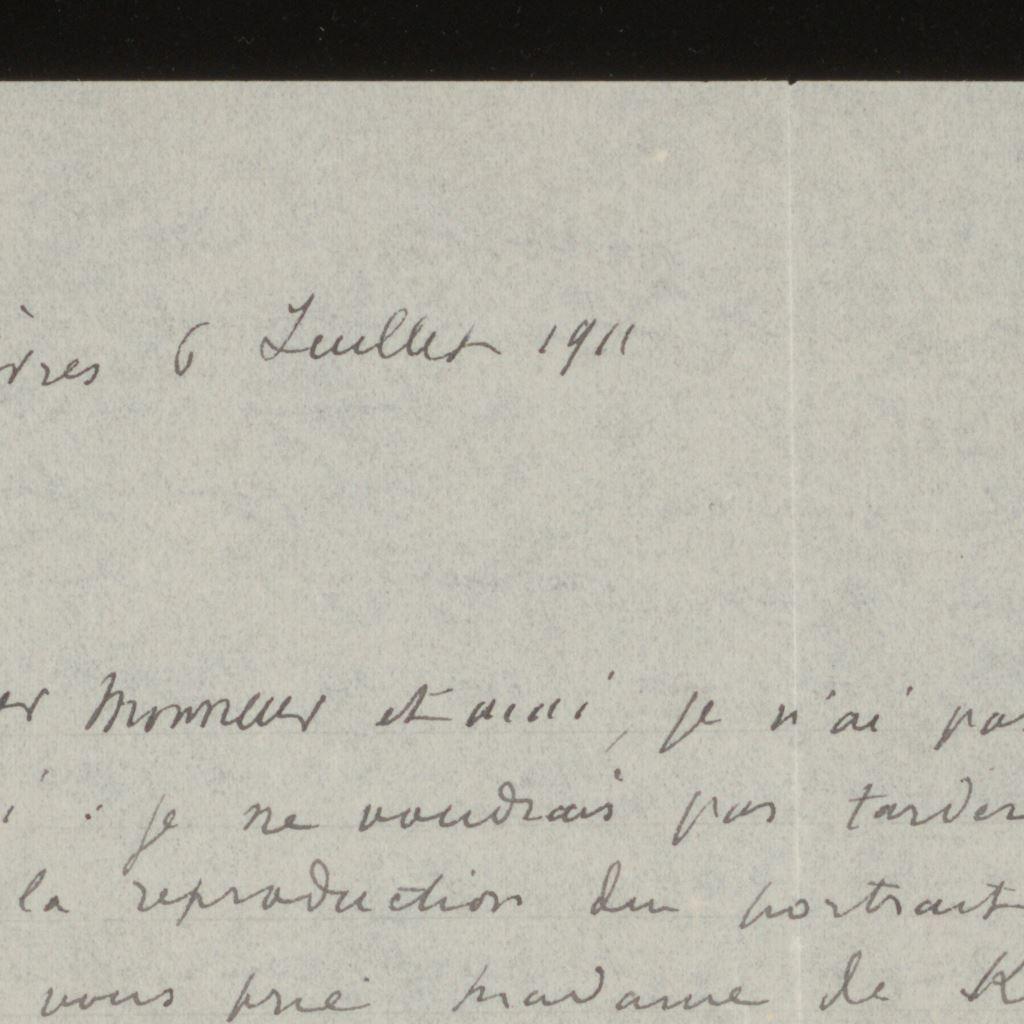 ères 6 Juillet 1911
er Monsieur et ami, je n'ai pas
i : je ne voudrais pas tarder
la reproduction du portrait
vous prie madame de K